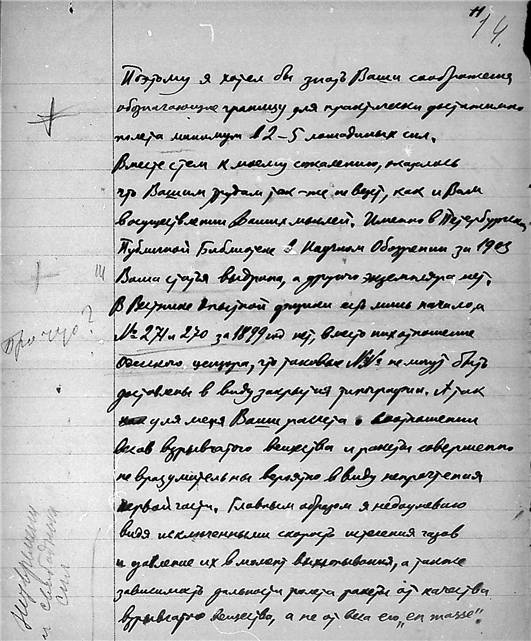 14.
Поэтому я хотел бы знать Ваши соображения
обозначающие границу для практически достижимого
полета минимум в 2–5 лошадиных сил.
Вместе с тем к моему сожалению, оказалось
что Вашим трудам так-же не везет, как и Вам
в осуществлении Ваших мыслей. Именно в Петербургской
Публичной Библиотеке в Научном Обозрении за 1903
Ваша статья выдрана, а другого экземпляра нет.
В Вестнике Опытной физики есть лишь начало, а
№ 271 и 270 за 1899 год нет, вместо них отношение
Одесского цензора, что таковые №№ не могут быть
доставлены в виду закрытия типографии. А так
для меня Ваши расчета о соотношении
весов взрывчатого вещества и ракеты совершенно
не вразумительны вероятно в виду непрочтения
первой части. Главным образом я недоумеваю
видя исключенными скорость истечения газов
и давление их в момент выхлопывания, а также
зависимость дальности полета ракеты от качества
взрывчатого вещества, а не от веса его, en masse".
Про что?
и свободных
сил